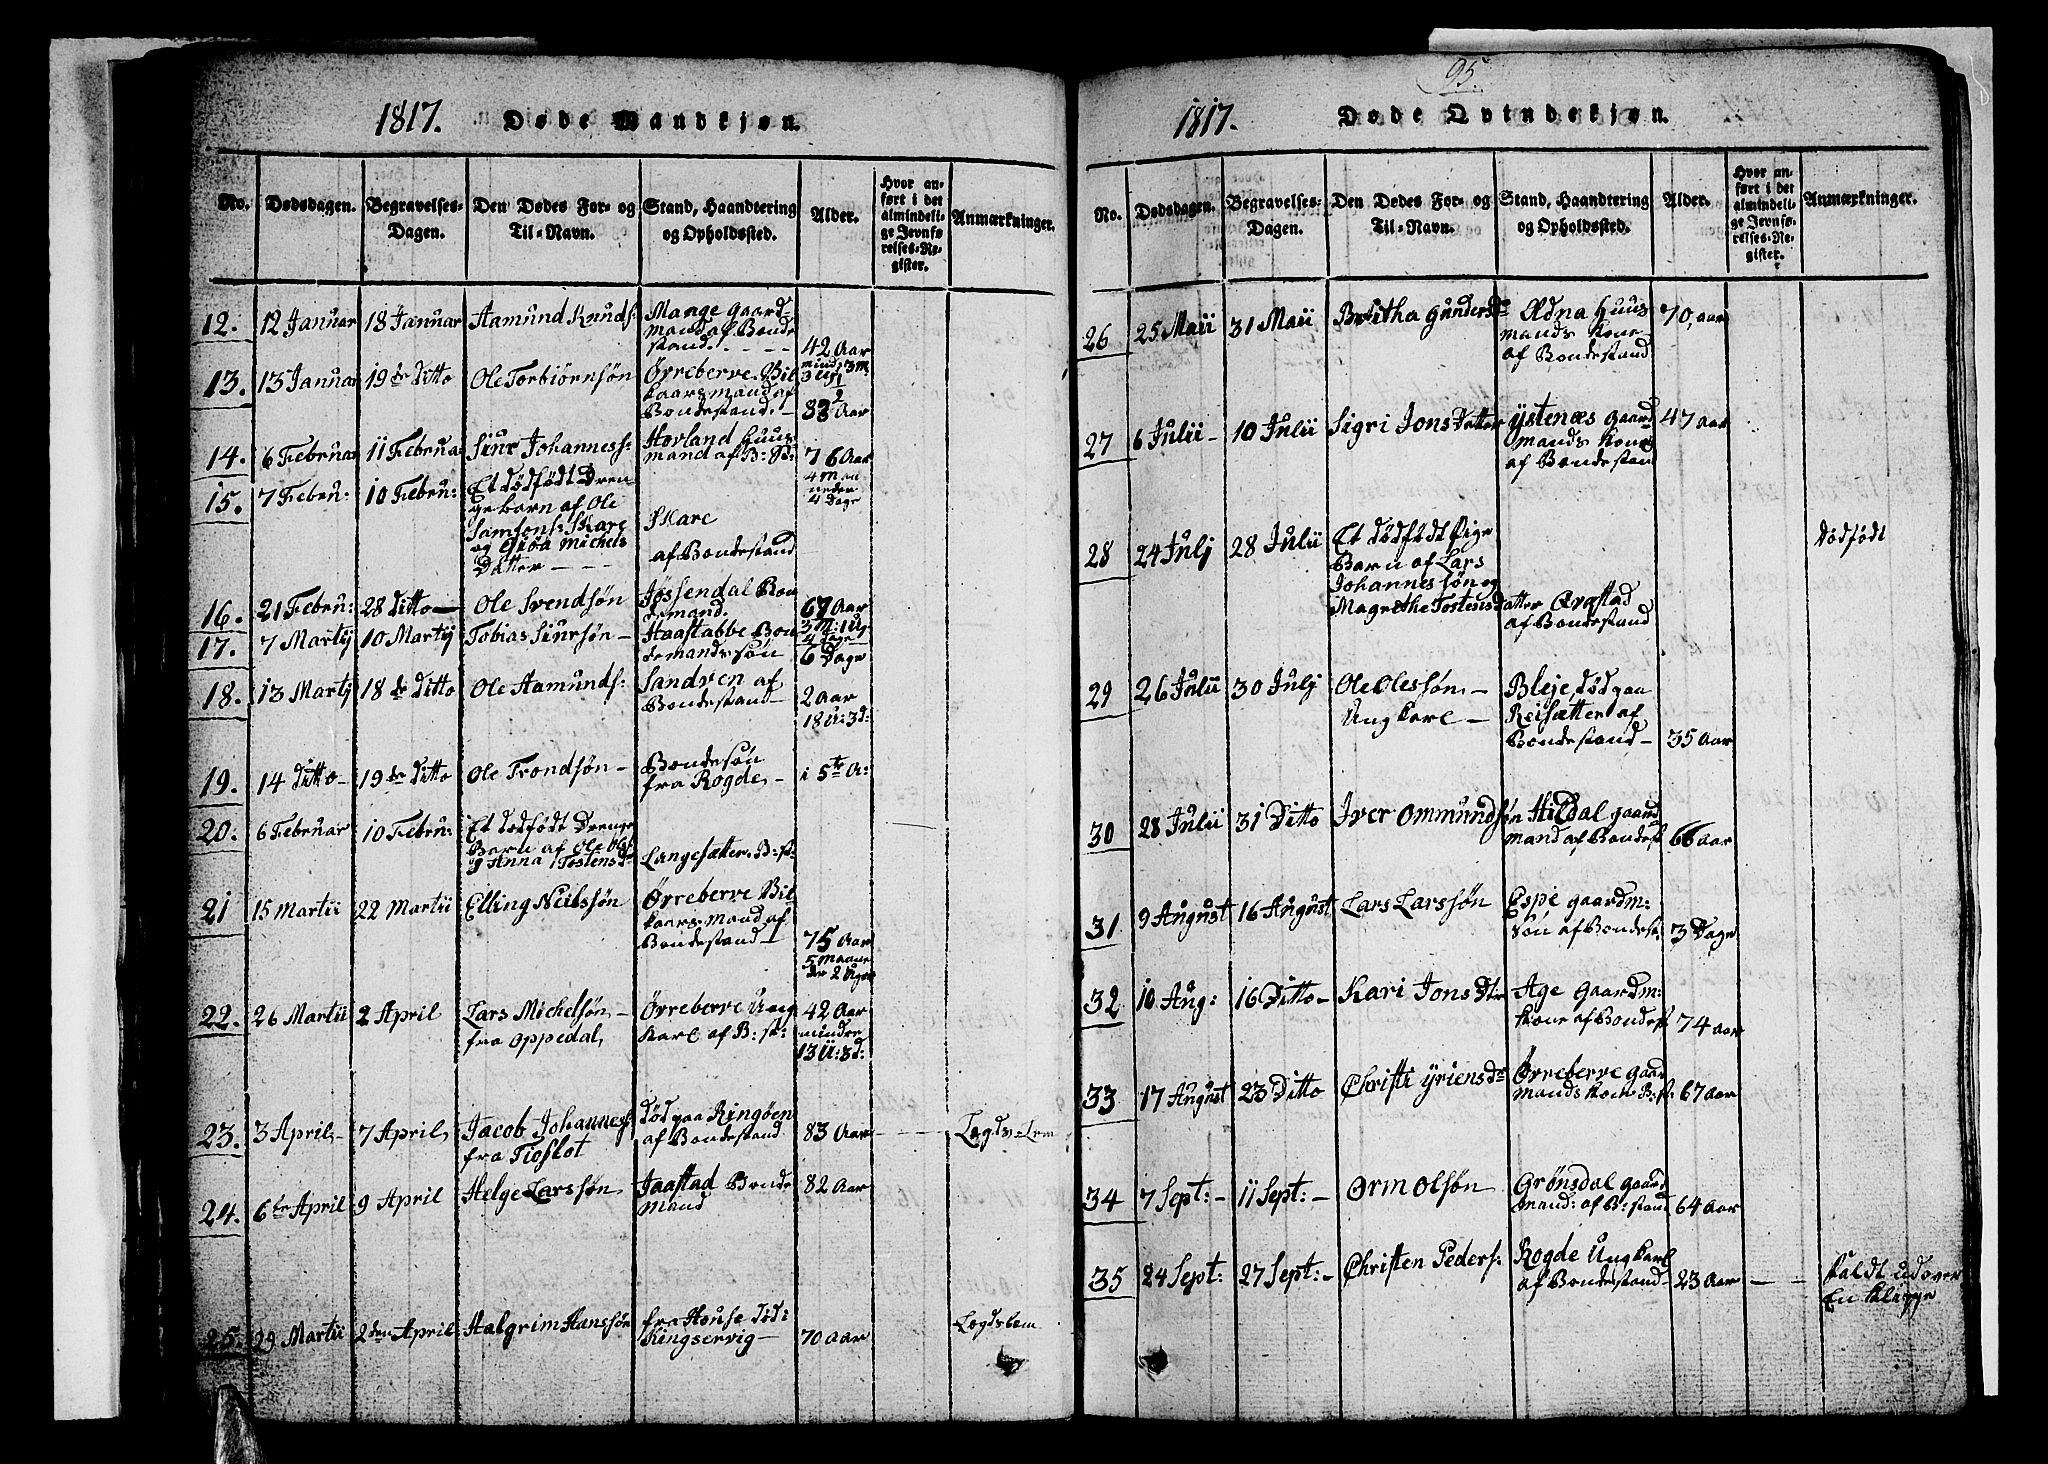 1817. Døde Mandkjøn.
No. Dødsdagen. Begravelses-Dagen. Den Dødes For- og Til-Navn. Stand, Haandtering og Opholdssted. Alder. Hvor anført i det almindelige Jevnførelses-Register. Anmærkninger.
12. 12 Januar 18 Januar Aamund Knuds: Mange gaard-
mand af Bonde
stand. 42 Aar
mind 3 M
3 Ug:
13. 13 Januar 19de Ditto Ole Torbiörnsön Örreberve Vil
kaarsmand af
Bondestand. 83 Aar
14. 6 Februar 11 Februar Siur Johanness: Hovland Huus
mand af B: St: 76 Aar
4 Maa
neder
4 Dage
15. 7 Febru: 10 Febru: Et dödfödt Dren
gebarn af Ole
Samsons: Skare
og Giöa Michels
Datter
Skare
af Bondestand
16. 21 Febru: 28 Ditto Ole Svendsön Jössendal Bon
demand. 67 Aar
3 M: 1 Ug
4 Dage
17. 7 Martij 10 Martij Tobias Siursön Haastabbe Bon
demandssön 6 Dage
18. 13 Martij 18de Ditto Ole Aamunds: Sandven af
Bondestand 2 Aar
18 U: 3 d:
19. 14 Ditto 19de Ditto Ole Trondsön Bondesön
fra Rogde i 5te A:
20. 6 Februar 10 Febru: Et dodfödt Drenge
Barn af Ole Ols
og Anna Tostensd
Langesætter. B: st:
21 15 Martii 22 Martii Elling Neilssön Örreberve Vil
kaarsmand af
Bondestand 75 Aar
5 Maane
der 2 Uger
22. 26 Martii 2 April Lars Michelsön
fra Oppedal, Örreberve Ung
karl af B: st: 42 Aar
minder
13 U: 3 d:
23. 3 April 7 April, Jacob Johanness:
fra Tioflot död paa Ringöen
af Bondestand 83 Aar Lægds-Lem
24. 6te April 9 April Helge Larssön Jaastad Bonde
mand 82 Aar
25. 29 Martii 2den April Halgrim Hanssön fra House död i
Kingservig 70 Aar Lægdslem
95.
1817. Døde Qvindekjøn.
No. Dødsdagen. Begravelses-Dagen. Den Dødes For- og Til-Navn. Stand, Haandtering og Opholdssted. Alder. Hvor anført i det almindelige Jevnførelses-Register. Anmærkninger.
26 25 Maii 31 Maii Britha Gundersdr Ædna Huus
mands kone
af Bondestand 70, aar
27 6 Julii 10 Julii Sigri Jons Datter Ystenæs Gaard
mands kone
af Bondestand 47 Aar
28 24 Julj 28 Julii Et dödfödt Pige
Barn af Lars
Johannessön og
Magrethe Tostensdatter Qvastad
af Bondestand Dödfödt
29 26 Julii 30 Julj Ole Olessön
Ungkarl Bleje, död paa
Reisætter af
Bondestand 35 Aar
30 28 Julii 31 Ditto Iver Ommundsön Hildal gaard
mand af Bondest 66 Aar
31 9 August 16 August Lars Larssön Espe gaardm:
sön af Bondest. 3 Dage
32 10 Aug: 16 Ditto Kari Jonsdtr Age Gaardm:
kone af Bondest 74 Aar
33 17 August 23 Ditto Christi Yriensdr Örreberve gaar
mands kone B: st: 67 Aar
34 7 Sept: 11 Sept: Orm Olsön Grönsdal gaard
mand: af B: stand 64 Aar
35 24 Sept: 27 Sept: Christen Peders: Rogde Ungkarl
af Bondestand 23 Aar Faldt udover
En klippe